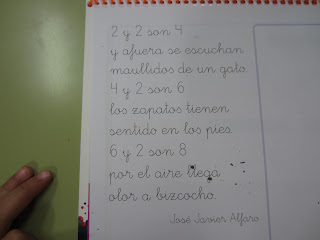 2 y 2 son 4
y afuera se escuchan
maullidos de un gato.
4 y 2 son 6
los zapatos tienen
sentido en los pies.
6 y 2 son 8
por el aire llega
olor a bizcocho.
José Javier Alfaro